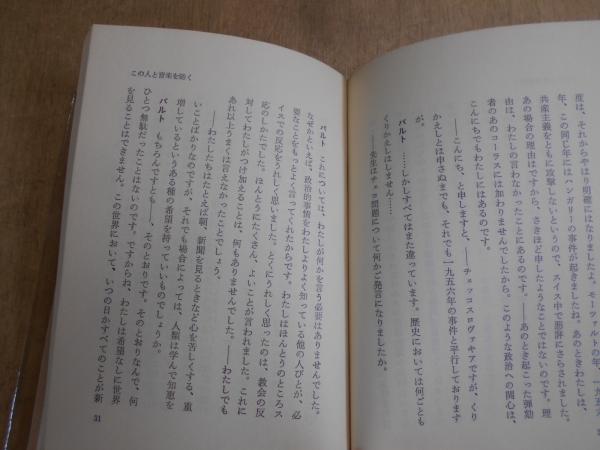 度は、それからやはり明確にはなりましたよ。モーツァルトの年、一九五六
年、この同じ年にはハンガリーの事件が起きましたね。あのときわたしは、
共産主義をともに攻撃しないというので、スイス中で悪評にさらされました。
あの場合の理由はですから、さきほど申したようなことではないのです。理
由は、わたしの言わなかったことにあるのです。――あのとき起こった弾劾
者のあのコーラスには加わりませんでしたから。このような政治への関心は、
こんにちでもわたしにはあるのです。
――こんにち、と申しますと、――チェッコスロヴァキアですが、くり
かえしとは申さぬまでも、それでも一九五六年の事件と平行しております
が。
バルト ……しかしすべてはまた違っています。歴史においては何ごとも
くりかえしはしません……。
――先生はチェコ問題について何かご発言になりましたか。
この人と音楽を聴く
バルト これについては、わたしが何かを言う必要はありませんでした。
なぜかといえば、政治的事情をわたしよりよく知っている他の人びとが、必
要なことをもっとよく言ってくれたからです。わたしはほんとうのところス
イスでの反応をうれしく思いました。とくにうれしく思ったのは、教会の反
応のしかたでした。ほんとうにたくさん、よいことが言われました。これに
対してわたしがつけ加えることは、何もありませんでした。――わたしでも
あれ以上うまくは言えなかったことでしょう。
――わたしたちはたとえば朝、新聞を見るときなど心を苦しくする、重
いことばかりなのですが、それでも場合によっては、人類は学んで知恵を
増しているというある種の希望を持っていいものでしょうか。
バルト もちろんですとも――、そのとおりです。そのとおりなんで、何
ひとつ無駄だったことはないのです。ですからね、わたしは希望なしに世界
を見ることはできません。この世界において、いつの日かすべてのことが新
31